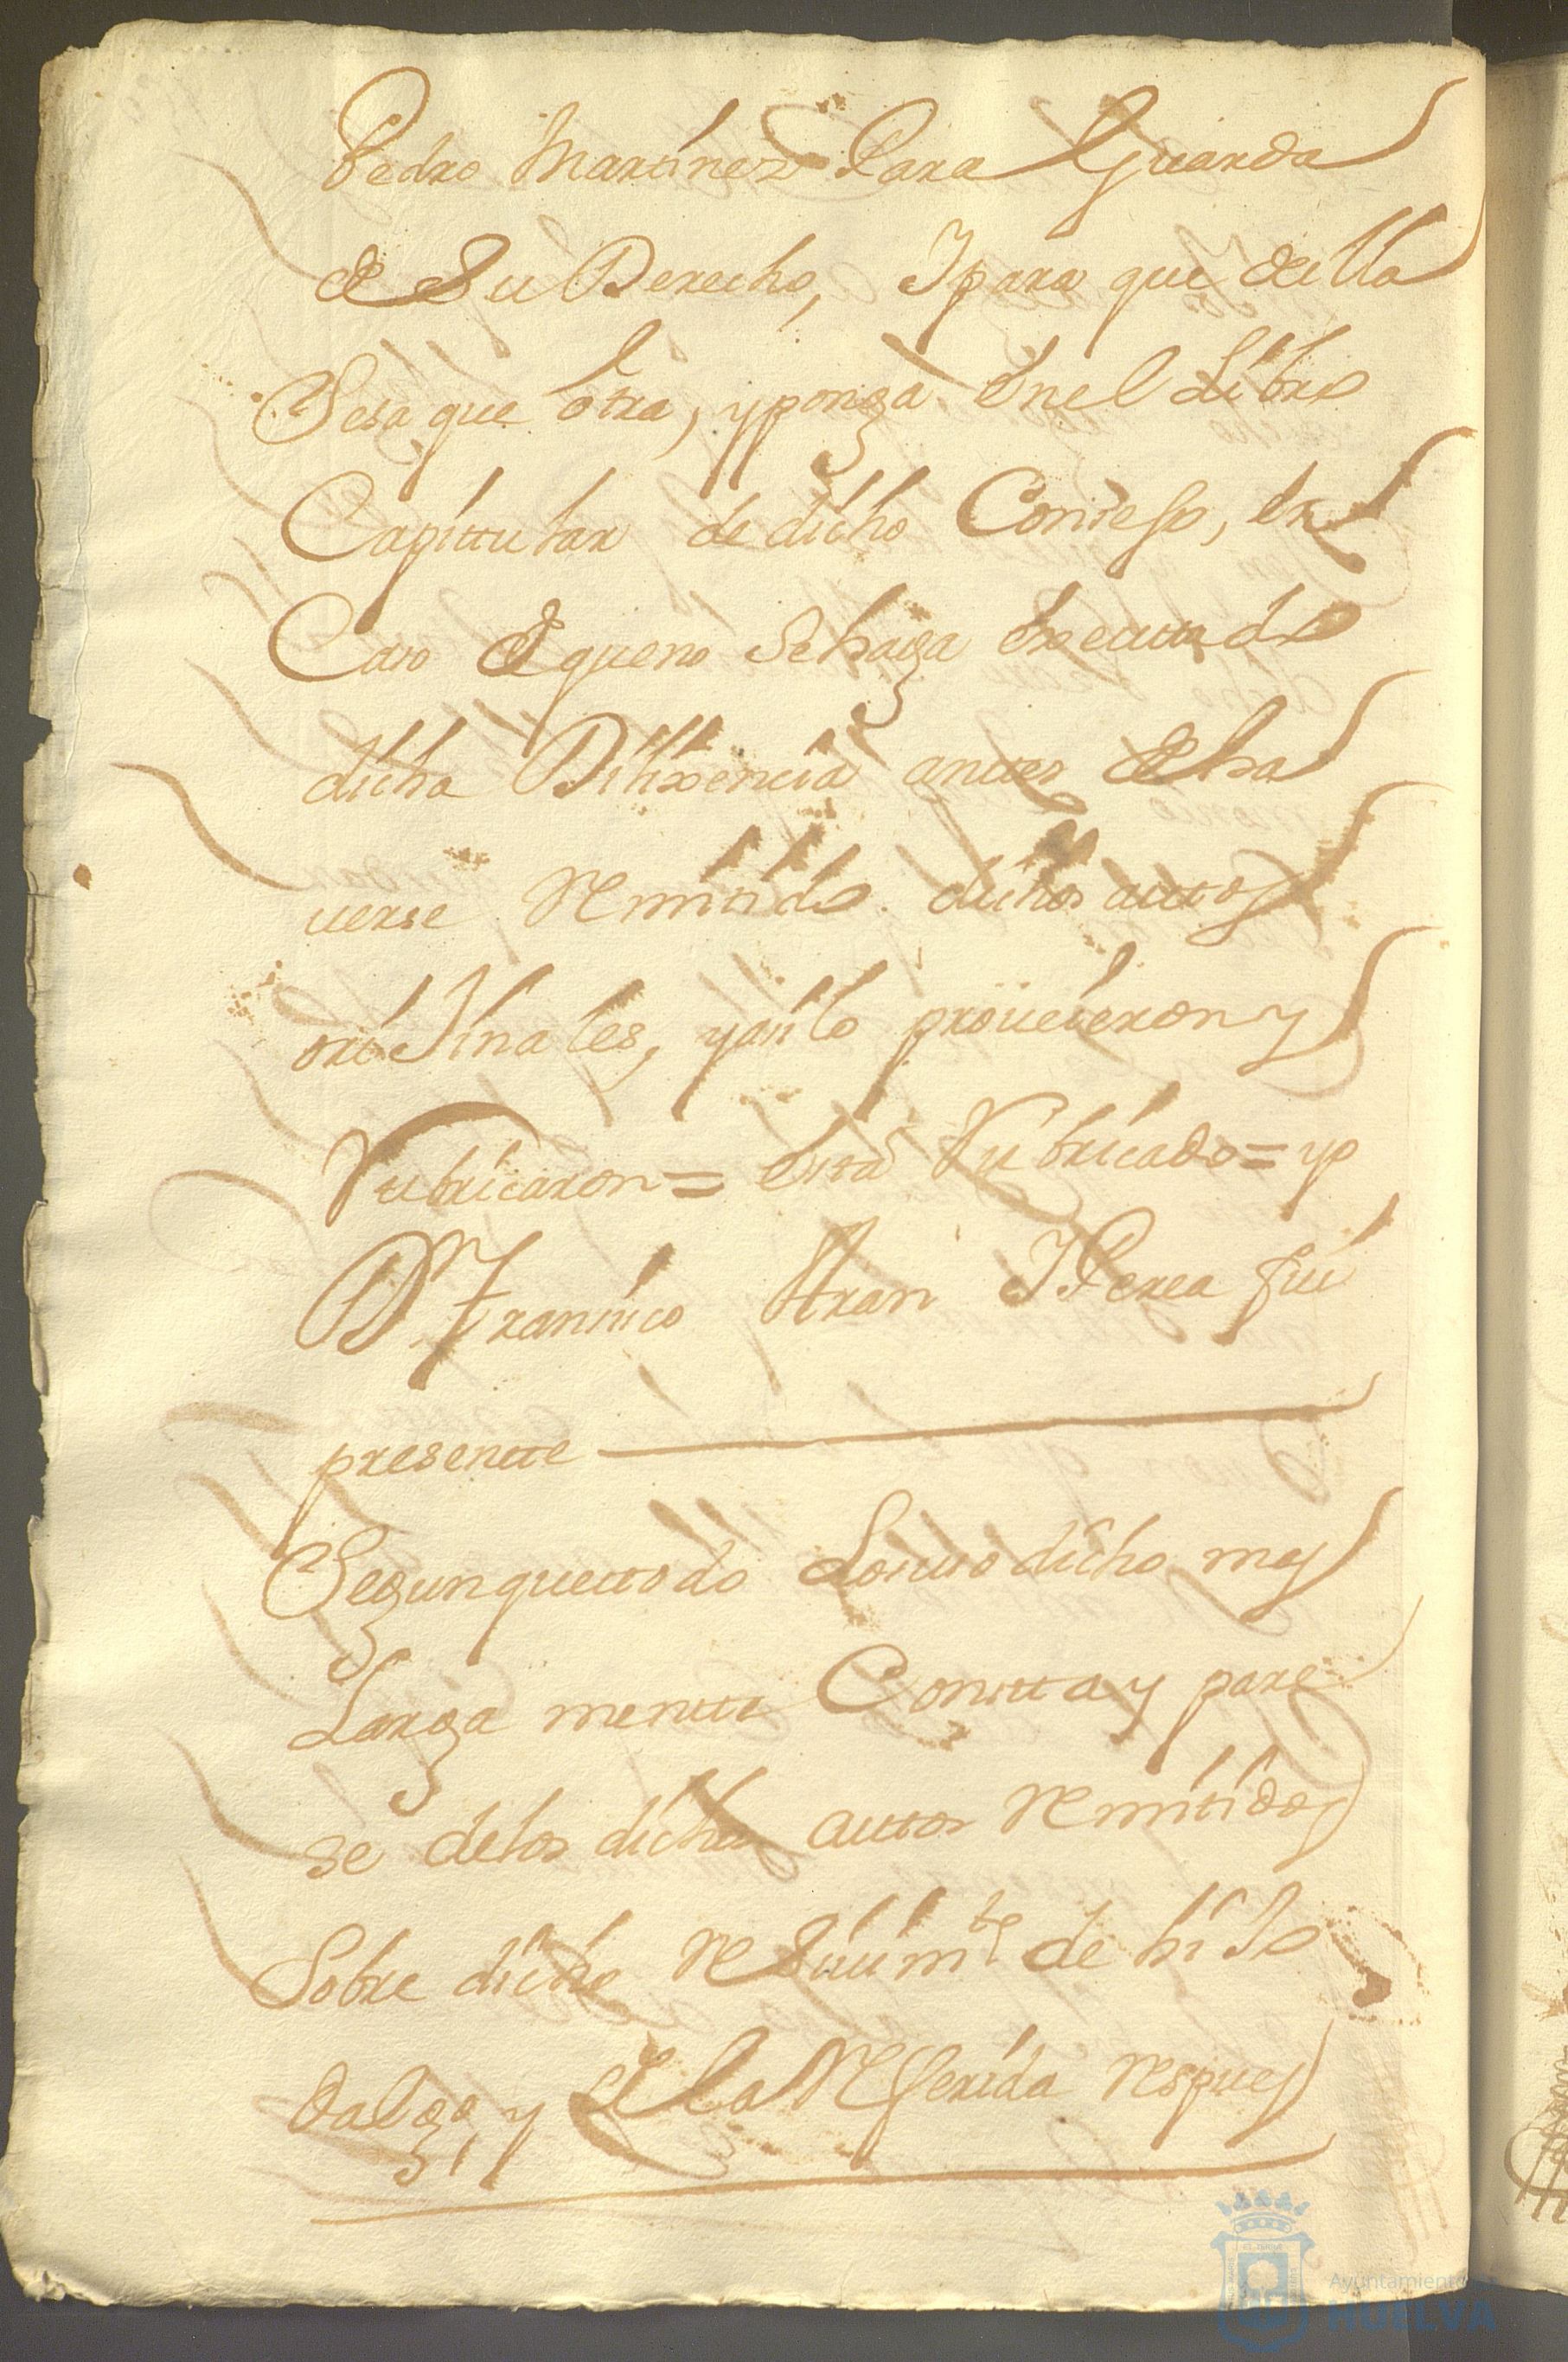 Pedro Martinez Para Guarda
de Su Derecho, Y para que della
Sesaque otra, yponga Enel Libro
Capittular de dicho Consejo, en
Caso de queno Sehaga Executado
dicha Dilixencia anttes de ha
uerse Remitido dichos auttos
oriJinales, yasilo proueieron y
Rubricaron = esta Rubricado = yo
Dn Franisco Aran Y Perea fui
presentte
Segunquettodo Losuso dicho mas
Larga mentte Constta y pare
se delos dichos auttos Remitidos
Sobre dicho ReSiuimto de hiJo
dalgo, y de la Referida respues
Ayuntamiento
HUELVA